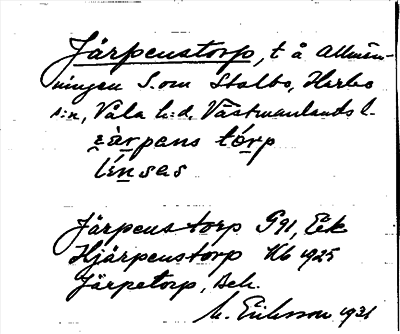 Järpenstorp, t å allmän-
ningen S. om Stalbo, Harbo
s:n, Våla h:d, Västmanlands l.
järpens tórp
línsas
Järpens torp G 91, Ek
Hjärpenstorp Kb 1925
Järpetorp, Bek.
M. Eriksson 1931